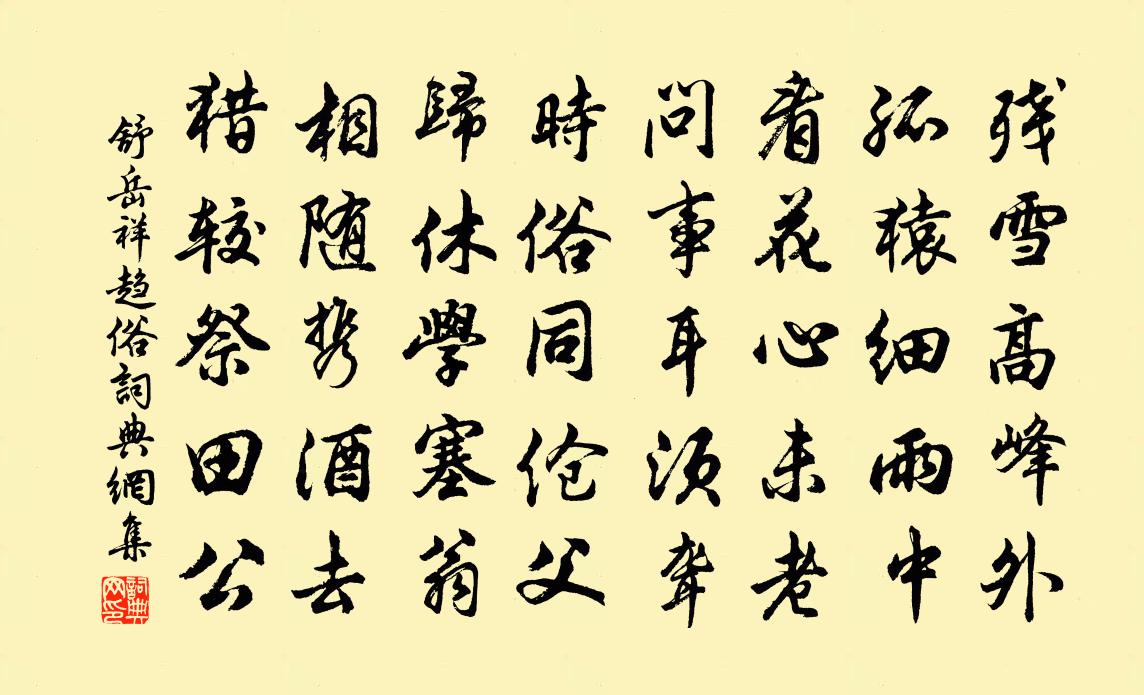 残雪高峰外
孤猿细雨中
看花心未老
问事耳须聋
時俗同伧父
歸休學塞翁
相随携酒去
猎较祭田公
舒岳祥趋俗詞典網集
詞典网印